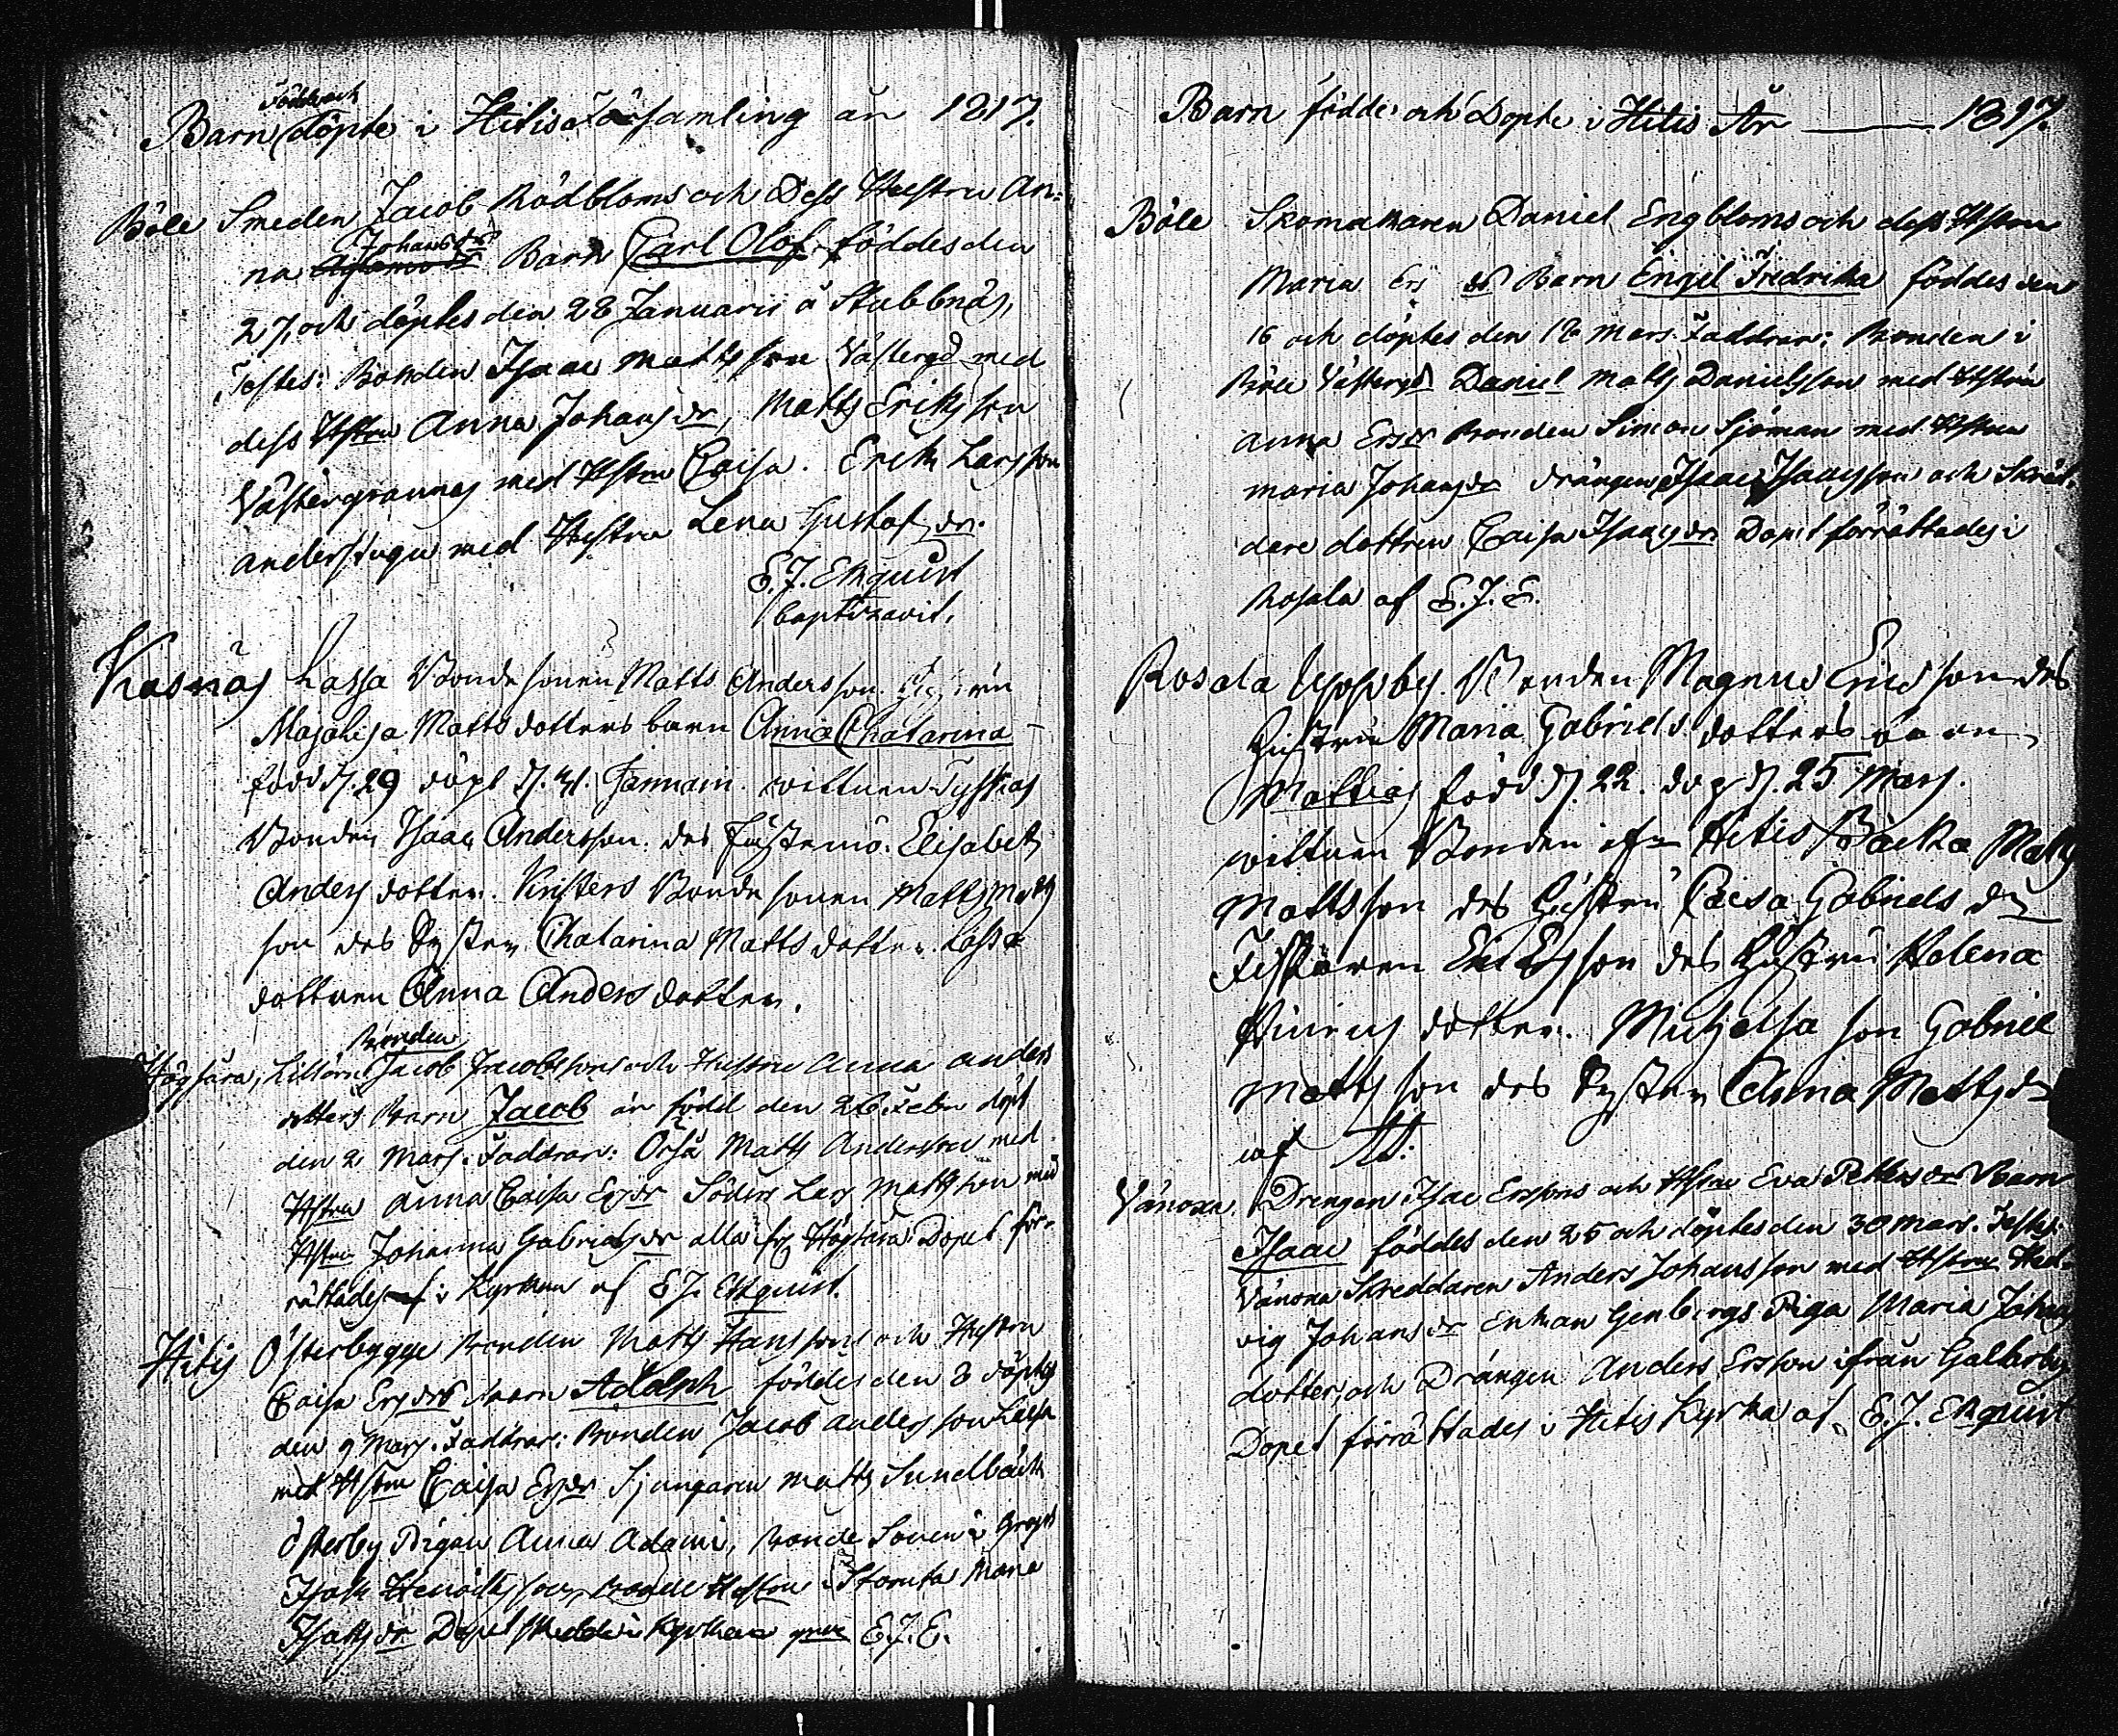 Födde och
Barn döpte i Hitis Församling år 1817.
Böle Smeden Jacob Rödbloms och Dess Hustru An-
Johansdr
na Barn Carl Olof föddes den
27, och döptes den 28 Januarii å Stubbnäs,
Testes: Bonden Isaac Mattsson Västergd med
dess Hstru Anna Johansdr, Matts Eriksson
Västergrannas med Hstru Caisa. Erik Larsson
anderstugu med Hustru Lena Gustafsdr.
E. J. Ekquist
baptizavit.
Kasnäs Lassa Bonde sonen Matts Andersson
Majalisa Matts dotters barn Anna Chatarina
född d. 29 döpt d. 31. Januarii. wittnen
Bonden Isaac Andersson. des Elisabet
Anders dotter. Bonde sonen Matts Matts
son des Syster Chatarina Matts dotter. Lassa
dottren Anna Anders dotter.
Bonden
Högsåra, Jacob Jacobssons och Hustru Anna anders
dotters Barn Jacob är född den 26 Febr döpt
den 2 Mars. Faddrar: Örså Matts Andersson med
Hstru Anna Caisa Ersdr Söders Lars Mattsson med
Hstru Johanna Gabrielsdr alla ifr Högsåra Dopet för-
rättades i Kyrkan af E J. Ekquist.
Hitis Österbygge Bonden Matts Hanssons och Hustru
Caisa Ersdrs barn Adolph föddes den 8 döptes
den 9 Mars. Faddrar: Bonden Jacob andersson
med Hstru Caisa Ersdr Matts Sundbäck
Österby Pigan Anna Adami, Bonde Sonen i
Isak Bonde Hustru i Maria
Isaksdr Dopet skedde i Kyrkan E.J.E.
Barn födde och Döpte i Hitis År 1817.
Böle Skomakaren Daniel Engbloms och dess Hstru
Maria Ers dr Barn Engel Fredrika föddes den
16 och döptes den 18 Mars. Faddrar: Bonden i
Böle Västergd Daniel Matts Danielsson med Hstru
Anna Ersdr Bonden Simon Sjöman med Hstru
Maria Johansdr Drängen Isaac Isaacsson och Skräd-
dare dottren Caisa Isaacsdr. Dopet förrättades i
Rosala af E. J. E.
Rosala Uppby. Bonden Magnus Ericsson des
Hustru Maria Gabriels dotters barn
Mattias född d. 22. döp d. 25 Mars.
wittnen Bonden ifr Hitis Backa Matts
Mattsson des Hustru Caisa Gabriels dr
Fiskaren Eric Ersson des Hustru Helena
Hinrics dotter. Michelsa son Gabriel
Mattsson des Syster Anna Mattsdr
af
Vänoxa. Drengen Isac Erssons och Hstru Eva Petters dr Barn
Isaac föddes den 25 och döptes den 30 Mars. Testes:
Vänoxa Skreddaren Anders Johansson med Hstru Hed-
vig Johansdr Enkan Genbergs Piga Maria Johans
dotter, och Drängen Anders Ersson ifrån Galtarby
Dopet förrättades i Hitis Kyrka af E. J. Ekquist